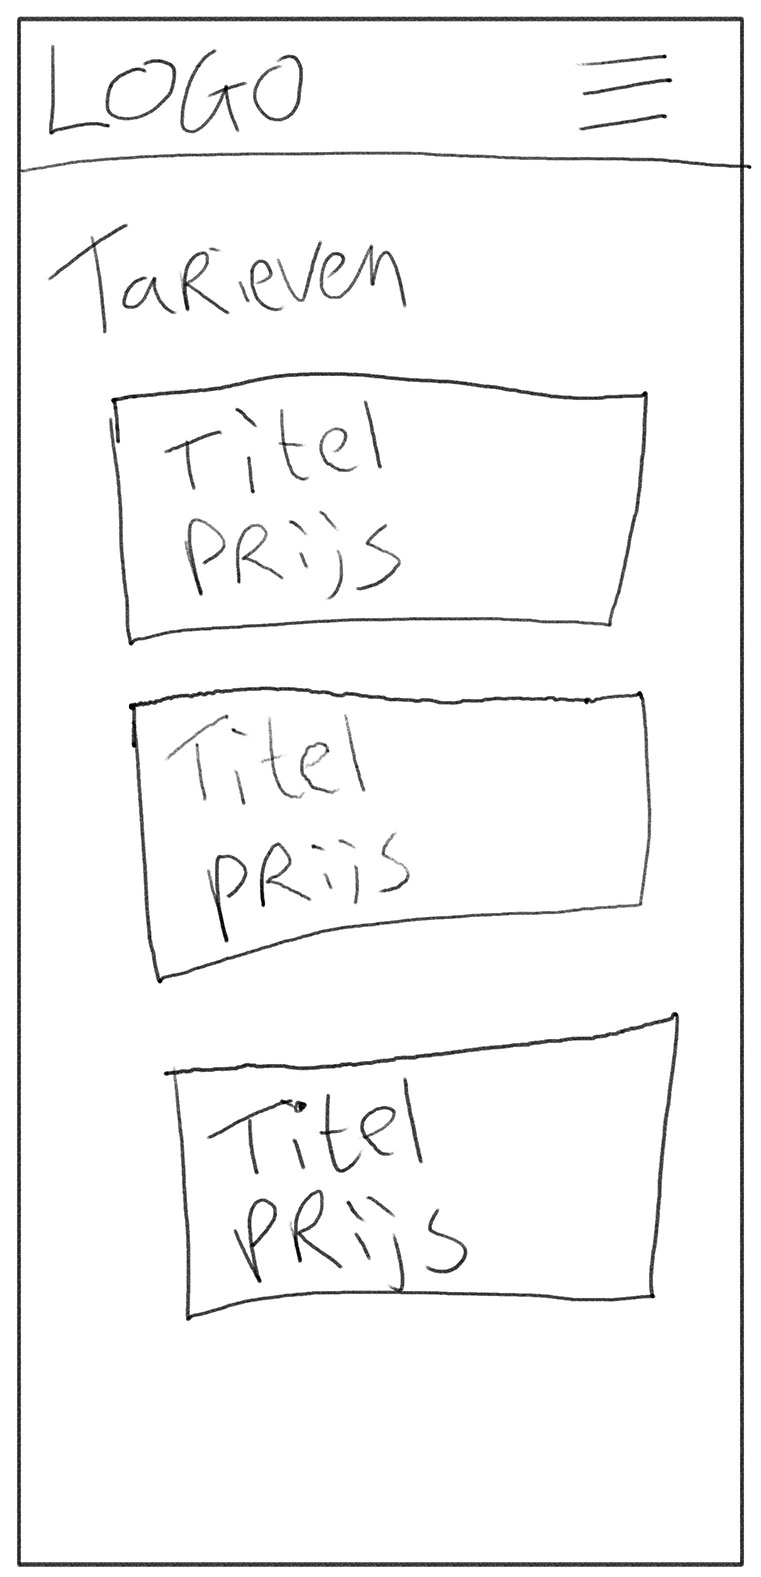 LOGO
Tarieven
Titel
PRijs
Titel
PRijs
Titel
PRijs